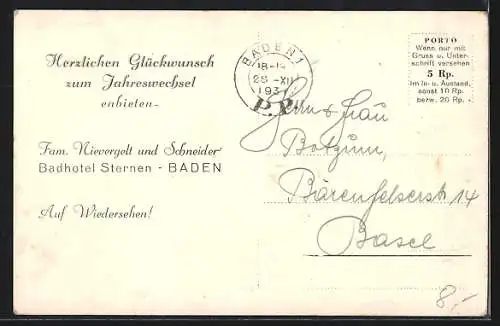 Herzlichen Glückwunsch
zum Jahreswechsel
enbieten-
Fam. Nievergelt und Schneider
Badhotel Sternen - BADEN
Auf Wiedersehen!
BADEN 1
28 -XII
193
P.P.
PORTO
Wenn nur mit
Gruss u. Unter-
schrift versehen
5 Rp.
Im In- u. Ausland,
sonst 10 Rp.
bezw. 20 Rp.
Herrn & Frau
Bärenfelserstr 14
Basel
8,-